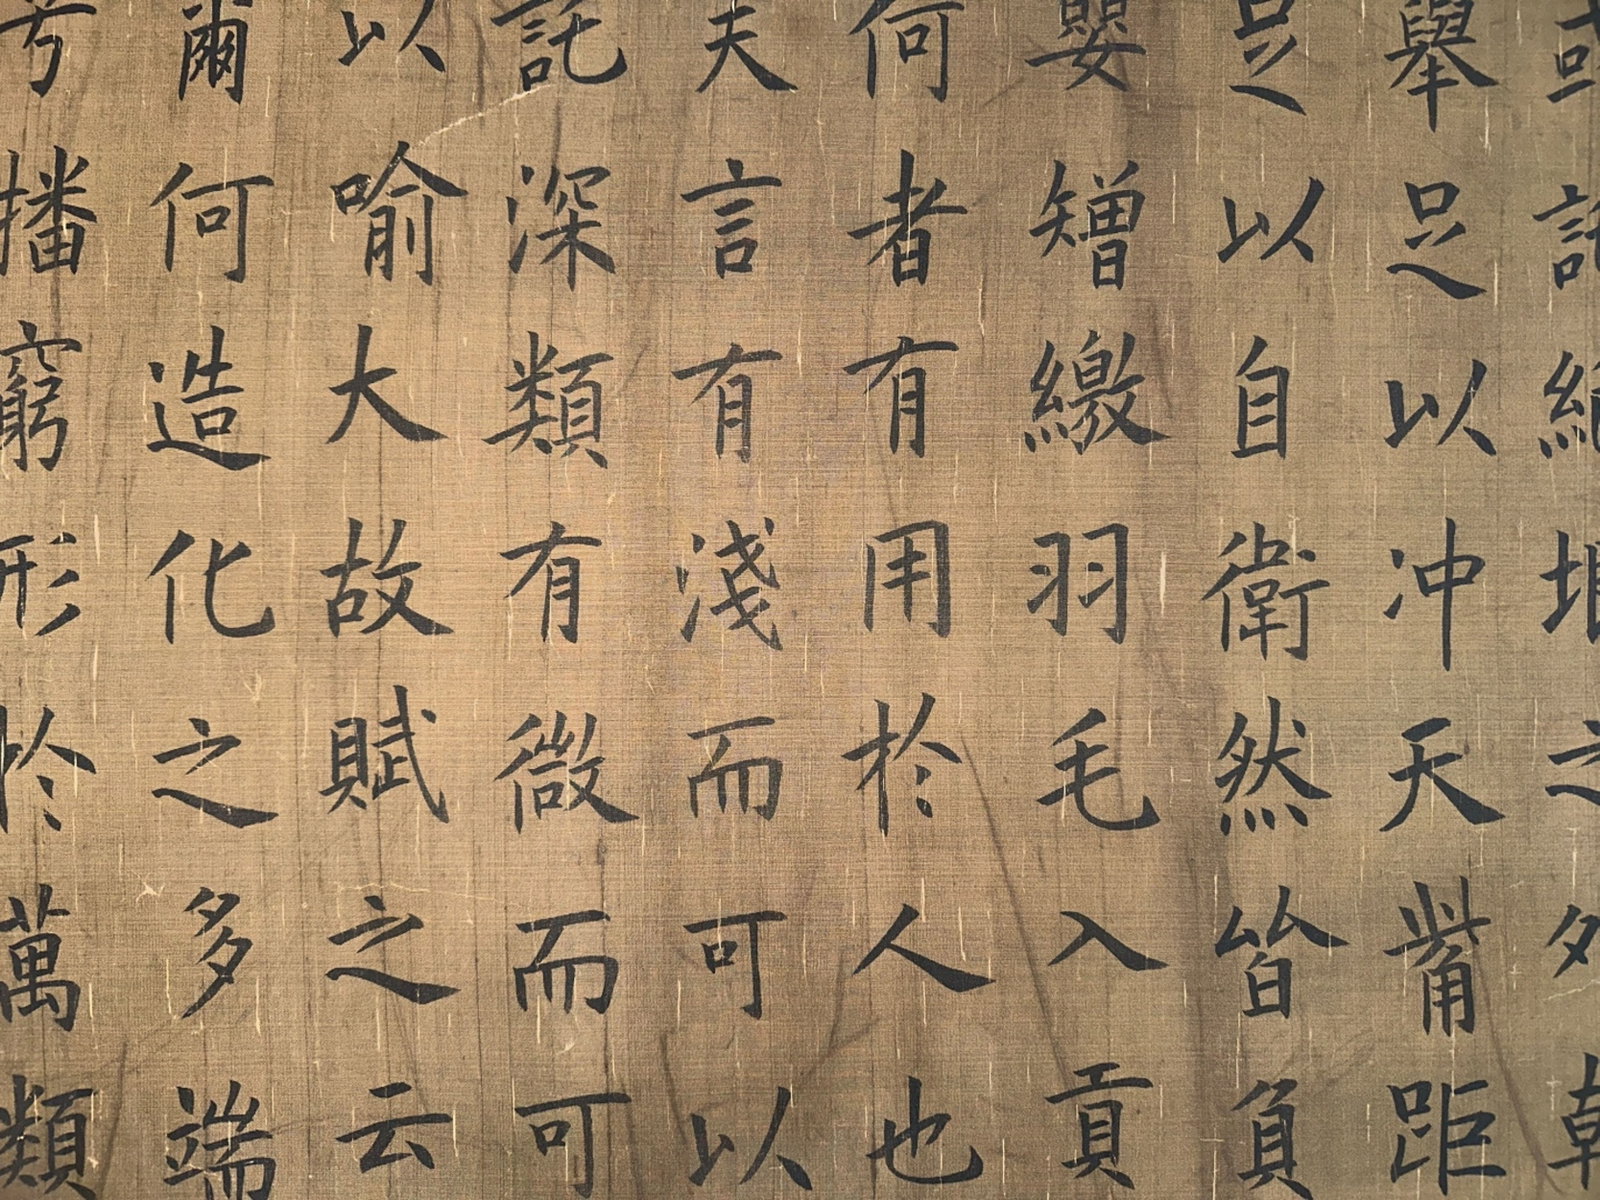 或託絕垠之外翰
舉足以冲天觜距
足以自衛然皆負
嬰矰繳羽毛入貢
何者有用於人也
夫言有淺而可以
託深類有微而可
以喻大故賦之云
爾何造化之多端
兮播窮形於萬類